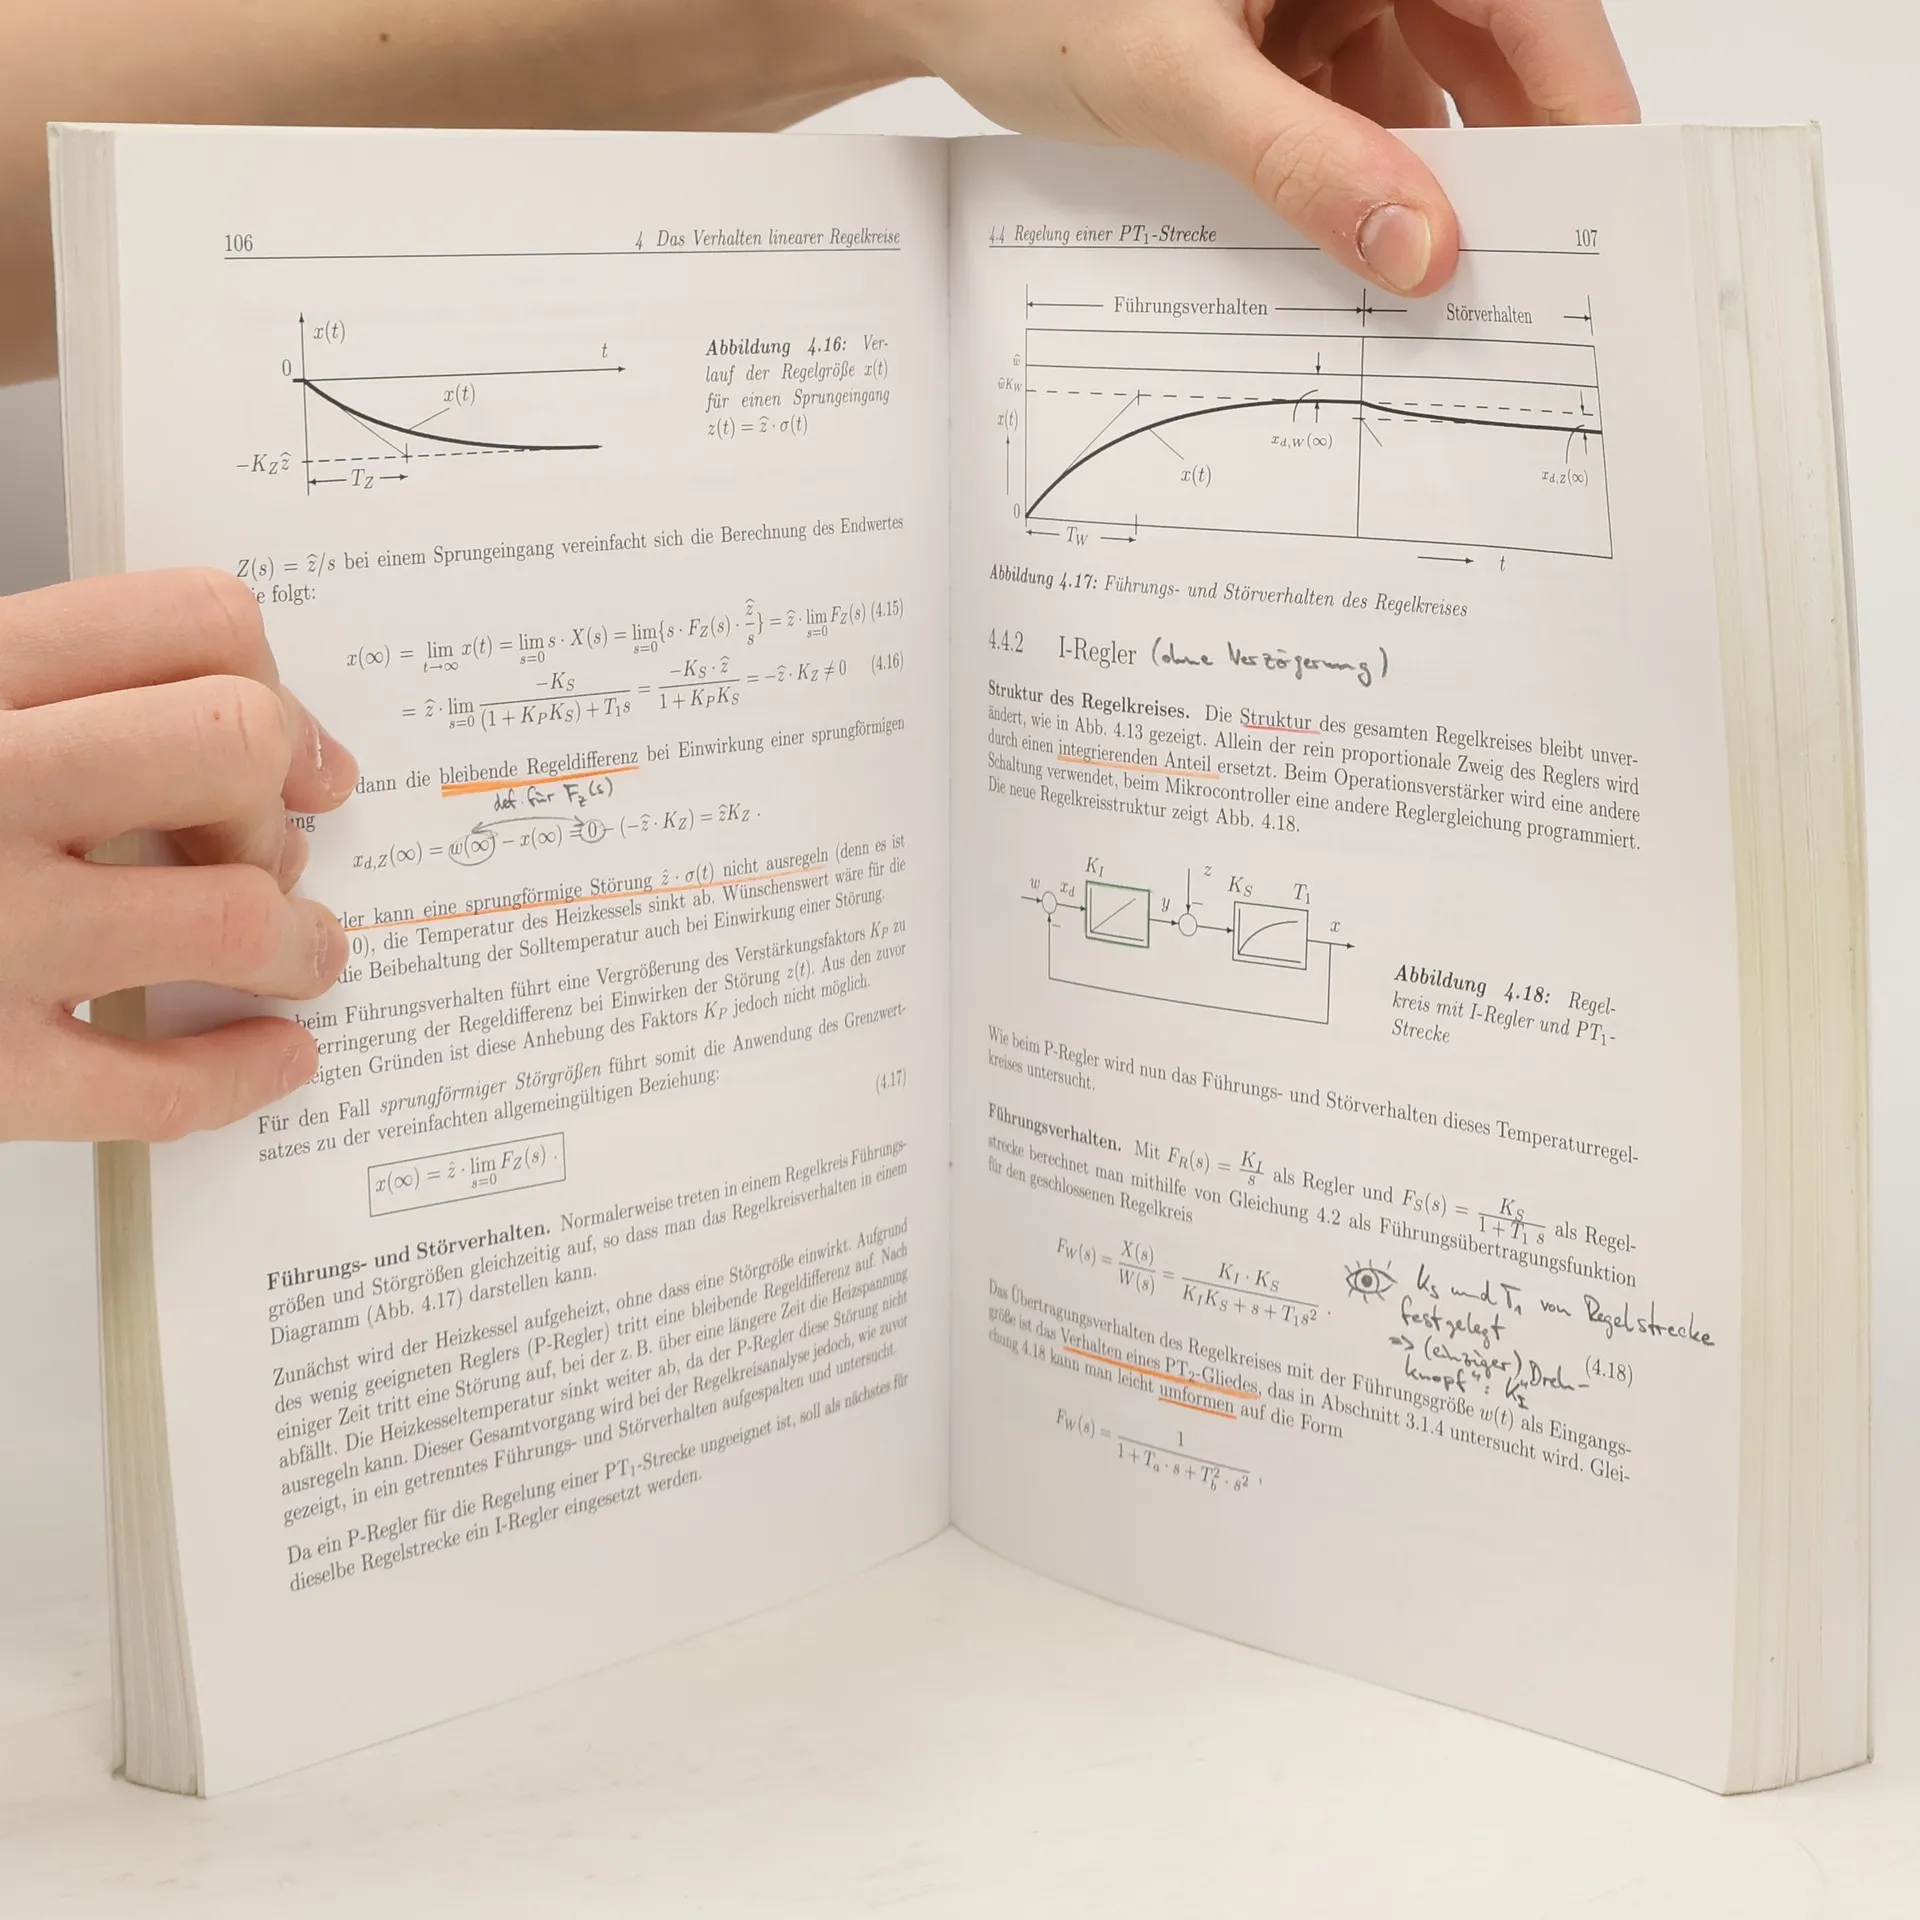 106
4 Das Verhalten linearer Regelkreise
x(t)
0
t
x(t)
−K_Z ẑ
T_Z
Abbildung 4.16: Ver-
lauf der Regelgröße x(t)
für einen Sprungeingang
z(t) = ẑ · σ(t)
Z(s) = ẑ/s bei einem Sprungeingang vereinfacht sich die Berechnung des Endwertes
ie folgt:
x(∞) = lim_{t→∞} x(t) = lim_{s=0} s · X(s) = lim_{s=0} {s · F_Z(s) · ẑ/s} = ẑ · lim_{s=0} F_Z(s) (4.15)
= ẑ · lim_{s=0} −K_S / ((1 + K_P K_S) + T_1 s) = −K_S · ẑ / (1 + K_P K_S) = −ẑ · K_Z ≠ 0 (4.16)
dann die bleibende Regeldifferenz bei Einwirkung einer sprungförmigen
ng
def. für F_Z(s)
x_{d,Z}(∞) = w(∞) − x(∞) = 0 − (−ẑ · K_Z) = ẑK_Z .
ler kann eine sprungförmige Störung ẑ · σ(t) nicht ausregeln (denn es ist
0), die Temperatur des Heizkessels sinkt ab. Wünschenswert wäre für die
die Beibehaltung der Solltemperatur auch bei Einwirkung einer Störung.
beim Führungsverhalten führt eine Vergrößerung des Verstärkungsfaktors K_P zu
erringerung der Regeldifferenz bei Einwirken der Störung z(t). Aus den zuvor
eigten Gründen ist diese Anhebung des Faktors K_P jedoch nicht möglich.
Für den Fall sprungförmiger Störgrößen führt somit die Anwendung des Grenzwert-
satzes zu der vereinfachten allgemeingültigen Beziehung:
(4.17)
x(∞) = ẑ · lim_{s=0} F_Z(s) .
Führungs- und Störverhalten. Normalerweise treten in einem Regelkreis Führungs-
größen und Störgrößen gleichzeitig auf, so dass man das Regelkreisverhalten in einem
Diagramm (Abb. 4.17) darstellen kann.
Zunächst wird der Heizkessel aufgeheizt, ohne dass eine Störgröße einwirkt. Aufgrund
des wenig geeigneten Reglers (P-Regler) tritt eine bleibende Regeldifferenz auf. Nach
einiger Zeit tritt eine Störung auf, bei der z. B. über eine längere Zeit die Heizspannung
abfällt. Die Heizkesseltemperatur sinkt weiter ab, da der P-Regler diese Störung nicht
ausregeln kann. Dieser Gesamtvorgang wird bei der Regelkreisanalyse jedoch, wie zuvor
gezeigt, in ein getrenntes Führungs- und Störverhalten aufgespalten und untersucht.
Da ein P-Regler für die Regelung einer PT₁-Strecke ungeeignet ist, soll als nächstes für
dieselbe Regelstrecke ein I-Regler eingesetzt werden.
4.4 Regelung einer PT₁-Strecke
107
Führungsverhalten
Störverhalten
ŵ
ŵK_W
x(t)
x_{d,W}(∞)
x(t)
x_{d,Z}(∞)
0
T_W
t
Abbildung 4.17: Führungs- und Störverhalten des Regelkreises
4.4.2 I-Regler (ohne Verzögerung)
Struktur des Regelkreises. Die Struktur des gesamten Regelkreises bleibt unver-
ändert, wie in Abb. 4.13 gezeigt. Allein der rein proportionale Zweig des Reglers wird
durch einen integrierenden Anteil ersetzt. Beim Operationsverstärker wird eine andere
Schaltung verwendet, beim Mikrocontroller eine andere Reglergleichung programmiert.
Die neue Regelkreisstruktur zeigt Abb. 4.18.
w
x_d
K_I
y
z
K_S
T_1
x
−
−
Abbildung 4.18: Regel-
kreis mit I-Regler und PT₁-
Strecke
Wie beim P-Regler wird nun das Führungs- und Störverhalten dieses Temperaturregel-
kreises untersucht.
Führungsverhalten. Mit F_R(s) = K_I/s als Regler und F_S(s) = K_S/(1 + T_1 s) als Regel-
strecke berechnet man mithilfe von Gleichung 4.2 als Führungsübertragungsfunktion
für den geschlossenen Regelkreis
F_W(s) = X(s)/W(s) = K_I · K_S / (K_I K_S + s + T_1 s²) .
K_S und T_1 von Regelstrecke
festgelegt
=> (einziger) „Dreh-
knopf": K_I
(4.18)
Das Übertragungsverhalten des Regelkreises mit der Führungsgröße w(t) als Eingangs-
größe ist das Verhalten eines PT₂-Gliedes, das in Abschnitt 3.1.4 untersucht wird. Glei-
chung 4.18 kann man leicht umformen auf die Form
F_W(s) = 1 / (1 + T_a · s + T_b² · s²) ,